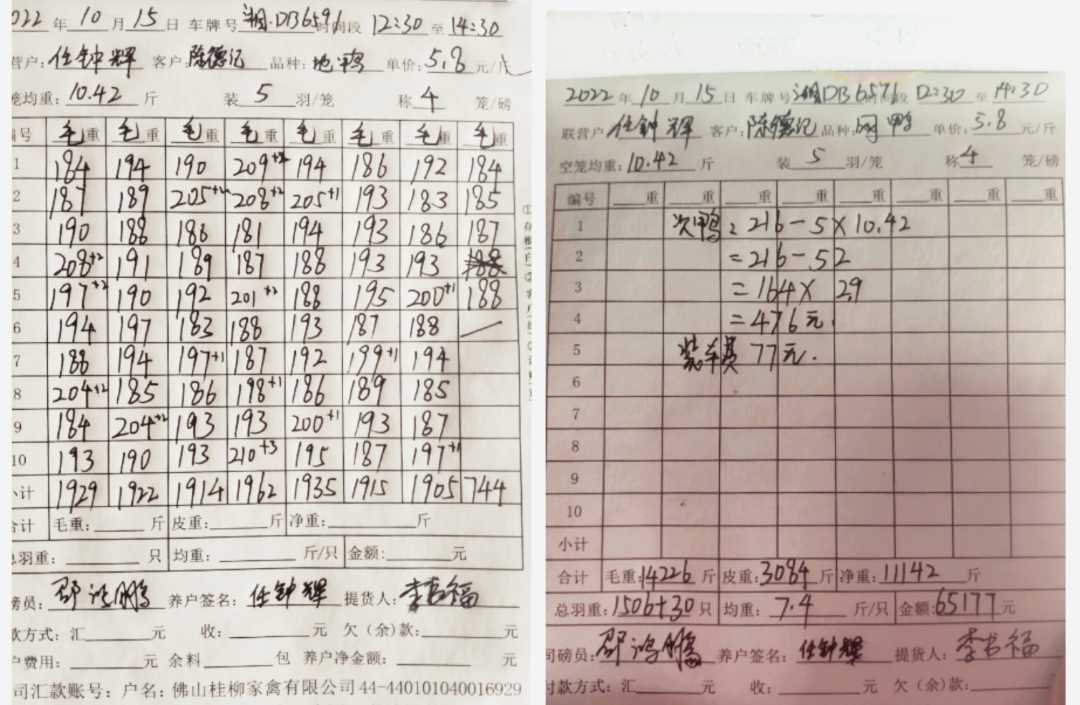 022 年 10 月 15 日 车牌号 湘DB6591 时间段 12:30 至 14:30
营户: 任钟辉 客户: 陈德记 品种: 地鸭 单价: 5.8 元/斤
笼均重: 10.42 斤 装 5 羽/笼 称 4 笼/磅
编号 毛重 毛重 毛重 毛重 毛重 毛重 毛重 毛重
1 184 194 190 209+2 194 186 192 184
2 187 189 205+2 208+2 205+1 193 183 185
3 190 188 186 181 194 193 186 187
4 208+2 191 189 187 188 193 193
5 197+2 190 192 201+2 188 195 200+1 188
6 194 197 183 188 193 187 188 —
7 188 194 197+1 187 192 199+1 194
8 204+2 185 186 198+1 186 189 185
9 184 204+2 193 193 200+1 193 187
10 193 190 193 210+3 195 187 197+1
小计 1929 1922 1914 1962 1935 1915 1905 744
合计 毛重: 斤 皮重: 斤 净重: 斤
总羽重: 只 均重: 斤/只 金额: 元
磅员: 邵鸿鹏 养户签名: 任钟辉 提货人: 李吉福
款方式: 汇 元 收: 元 欠(余)款:
户费用: 元 余料 包 养户净金额: 元
司汇款账号: 户名: 佛山桂柳家禽有限公司 44-440101040016929
2022 年 10 月 15 日 车牌号 湘DB6591 时间段 12:30 至 14:30
联营户: 任钟辉 客户: 陈德记 品种: 网鸭 单价: 5.8 元/斤
空笼均重: 10.42 斤 装 5 羽/笼 称 4 笼/磅
编号 重 重 重 重 重 重 重 重
1 次鸭: 216-5×10.42
2 =216-52
3 =164×2.9
4 =476元.
5 装车费 77元.
6
7
8
9
10
小计
合计 毛重: 14226 斤 皮重: 3084 斤 净重: 11142 斤
总羽重: 1506+30 只 均重: 7.4 斤/只 金额: 65177 元
司磅员: 邵鸿鹏 养户签名: 任钟辉 提货人: 李吉福
付款方式: 汇 元 收: 元 欠(余)款: